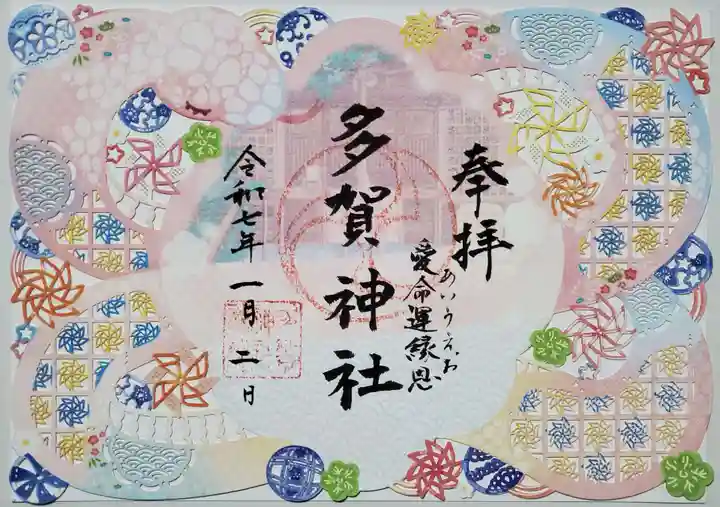 奉拝
愛命運縁恩
あいうえお
多賀神社
令和七年一月二日